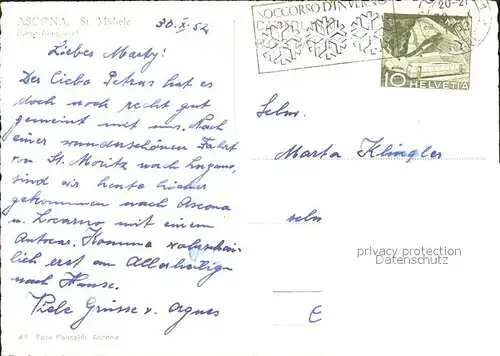 ASCONA. St. Michele
(Lago Maggiore)
30. X. 52
SOCCORSO D'INVERNO
20-21
10 HELVETIA
Liebes Marty!
Der liebe Petrus hat es
doch noch recht gut
gemeint mit uns. Nach
einer wunderschönen Fahrt
von St. Moritz nach Lugano,
sind wir heute hieher
gekommen nach Ascona
u. Locarno mit einem
Autocar. Komme wahrschein
lich erst an Allerheiligen
nach Hause.
Viele Grüsse v. Agnes
Marta Klingler
privacy protection
Datenschutz
Foto Pancaldi, Ascona